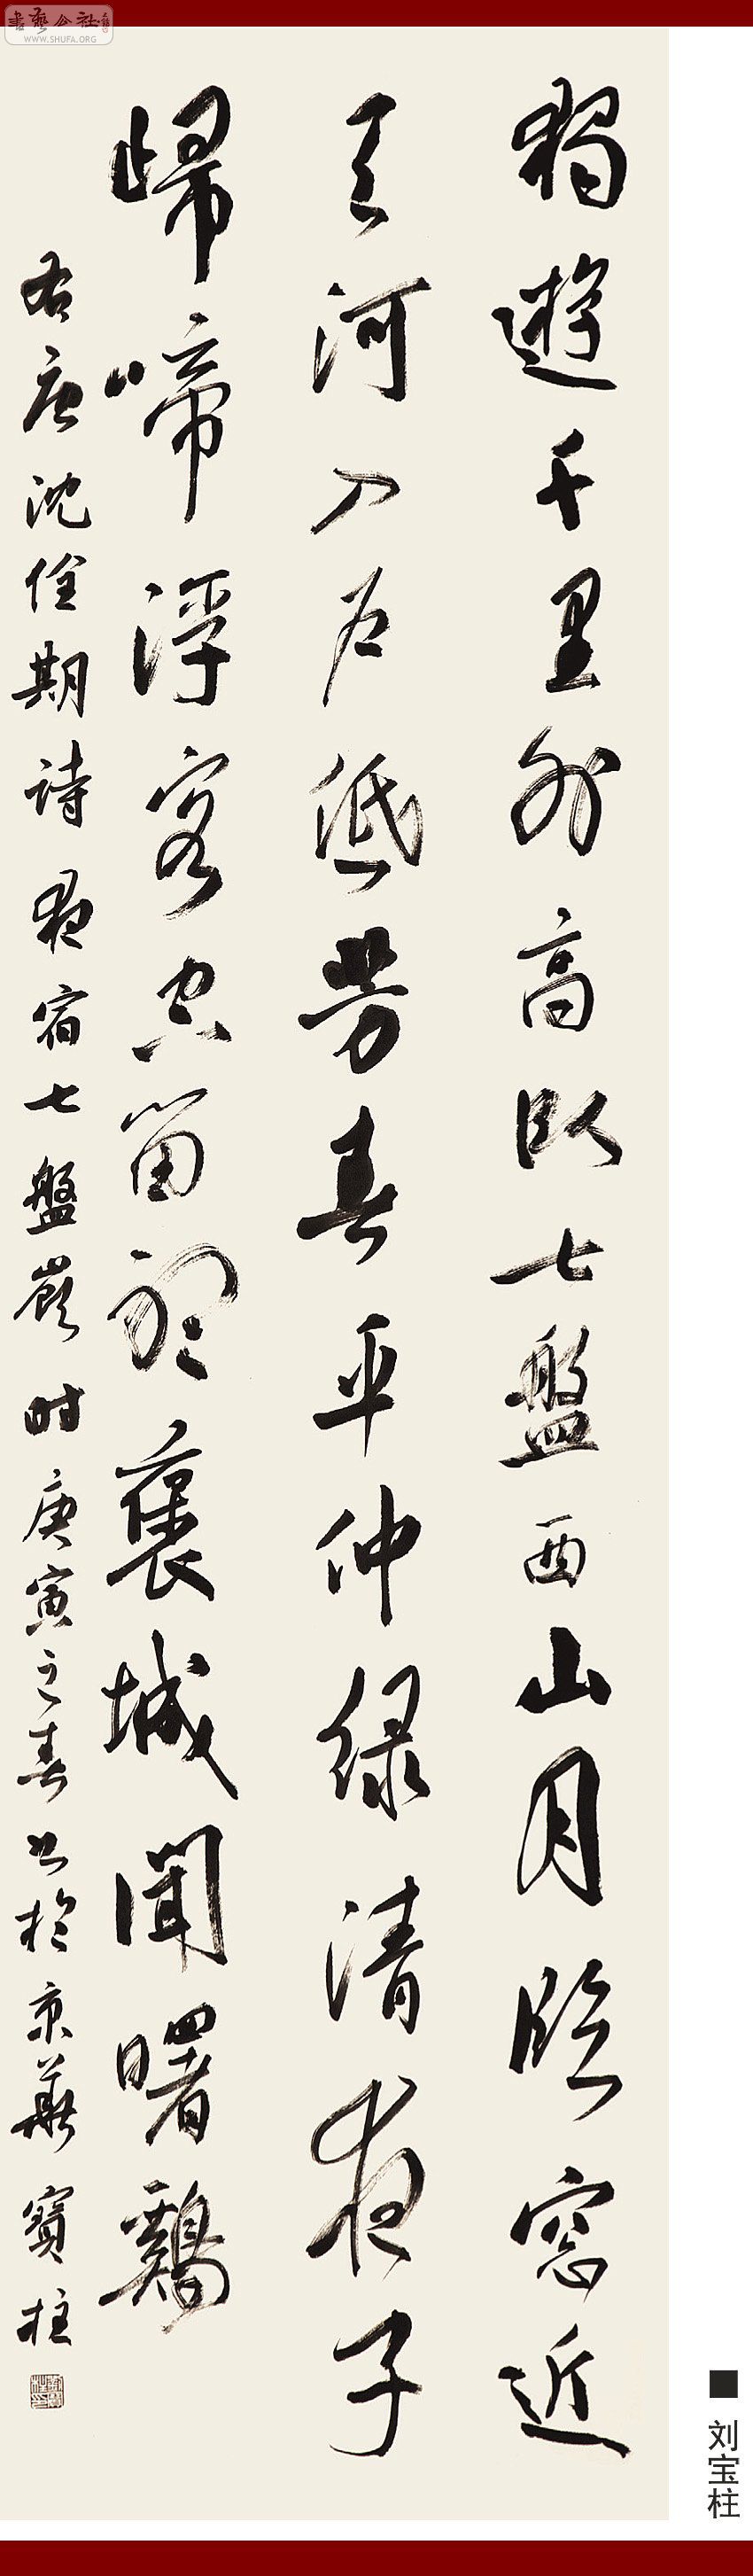 書藝公社
WWW.SHUFA.ORG
獨遊千里外高臥七盤西山月臨窗近
天河入戶低芳春平仲綠清夜子
歸啼浮客空留聽褒城聞曙鷄
右唐沈佺期詩夜宿七盤嶺時庚寅之春書於京華寶柱
刘宝柱